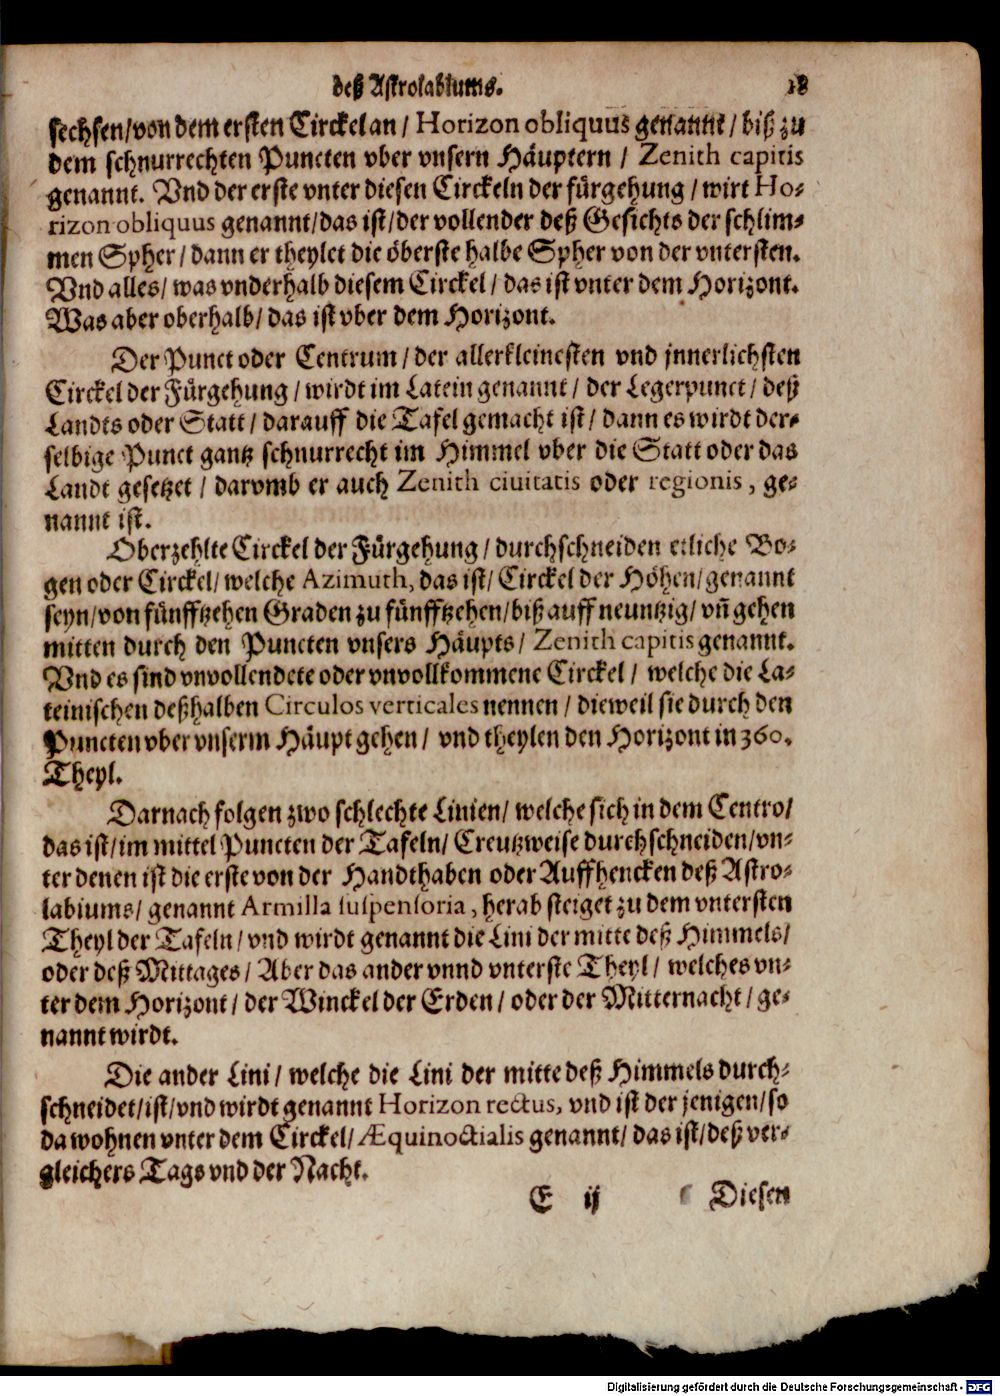 deß Astrolabiums. 18
sechsen/von dem ersten Circkel an / Horizon obliquus genannt / biß zu
dem schnurrechten Puncten vber vnsern Häuptern / Zenith capitis
genannt. Vnd der erste vnter diesen Circkeln der fürgehung / wirt Ho-
rizon obliquus genannt/das ist/der vollender deß Gesichts der schlim-
men Spher / dann er theylet die öberste halbe Spher von der vntersten.
Vnd alles/ was vnderhalb diesem Circkel / das ist vnter dem Horizont.
Was aber oberhalb/ das ist vber dem Horizont.
Der Punct oder Centrum / der allerkleinesten vnd jnnerlichsten
Circkel der Fürgehung / wirdt im Latein genannt / der Legerpunct / deß
Landts oder Statt / darauff die Tafel gemacht ist / dann es wirdt der-
selbige Punct gantz schnurrecht im Himmel vber die Statt oder das
Landt gesetzet / darvmb er auch Zenith ciuitatis oder regionis, ge-
nannt ist.
Oberzehlte Circkel der Fürgehung / durchschneiden etliche Bo-
gen oder Circkel/ welche Azimuth, das ist/ Circkel der Höhen/genannt
seyn/von fünfftzehen Graden zu fünfftzehen/biß auff neuntzig/ vñ gehen
mitten durch den Puncten vnsers Häupts/ Zenith capitis genannt.
Vnd es sind vnvollendete oder vnvollkommene Circkel / welche die La-
teinischen deßhalben Circulos verticales nennen / dieweil sie durch den
Puncten vber vnserm Häupt gehen / vnd theylen den Horizont in 360.
Theyl.
Darnach folgen zwo schlechte Linien/ welche sich in dem Centro/
das ist/im mittel Puncten der Tafeln/ Creutzweise durchschneiden/vn-
ter denen ist die erste von der Handthaben oder Auffhencken deß Astro-
labiums/ genannt Armilla suspensoria, herab steiget zu dem vntersten
Theyl der Tafeln/ vnd wirdt genannt die Lini der mitte deß Himmels/
oder deß Mittages / Aber das ander vnnd vnterste Theyl / welches vn-
ter dem Horizont / der Winckel der Erden / oder der Mitternacht / ge-
nannt wirdt.
Die ander Lini / welche die Lini der mitte deß Himmels durch-
schneidet/ist/vnd wirdt genannt Horizon rectus, vnd ist der jenigen/so
da wohnen vnter dem Circkel/ Æquinoctialis genannt/ das ist/deß ver-
gleichers Tags vnd der Nacht.
E ij Diesen
Digitalisierung gefördert durch die Deutsche Forschungsgemeinschaft - DFG